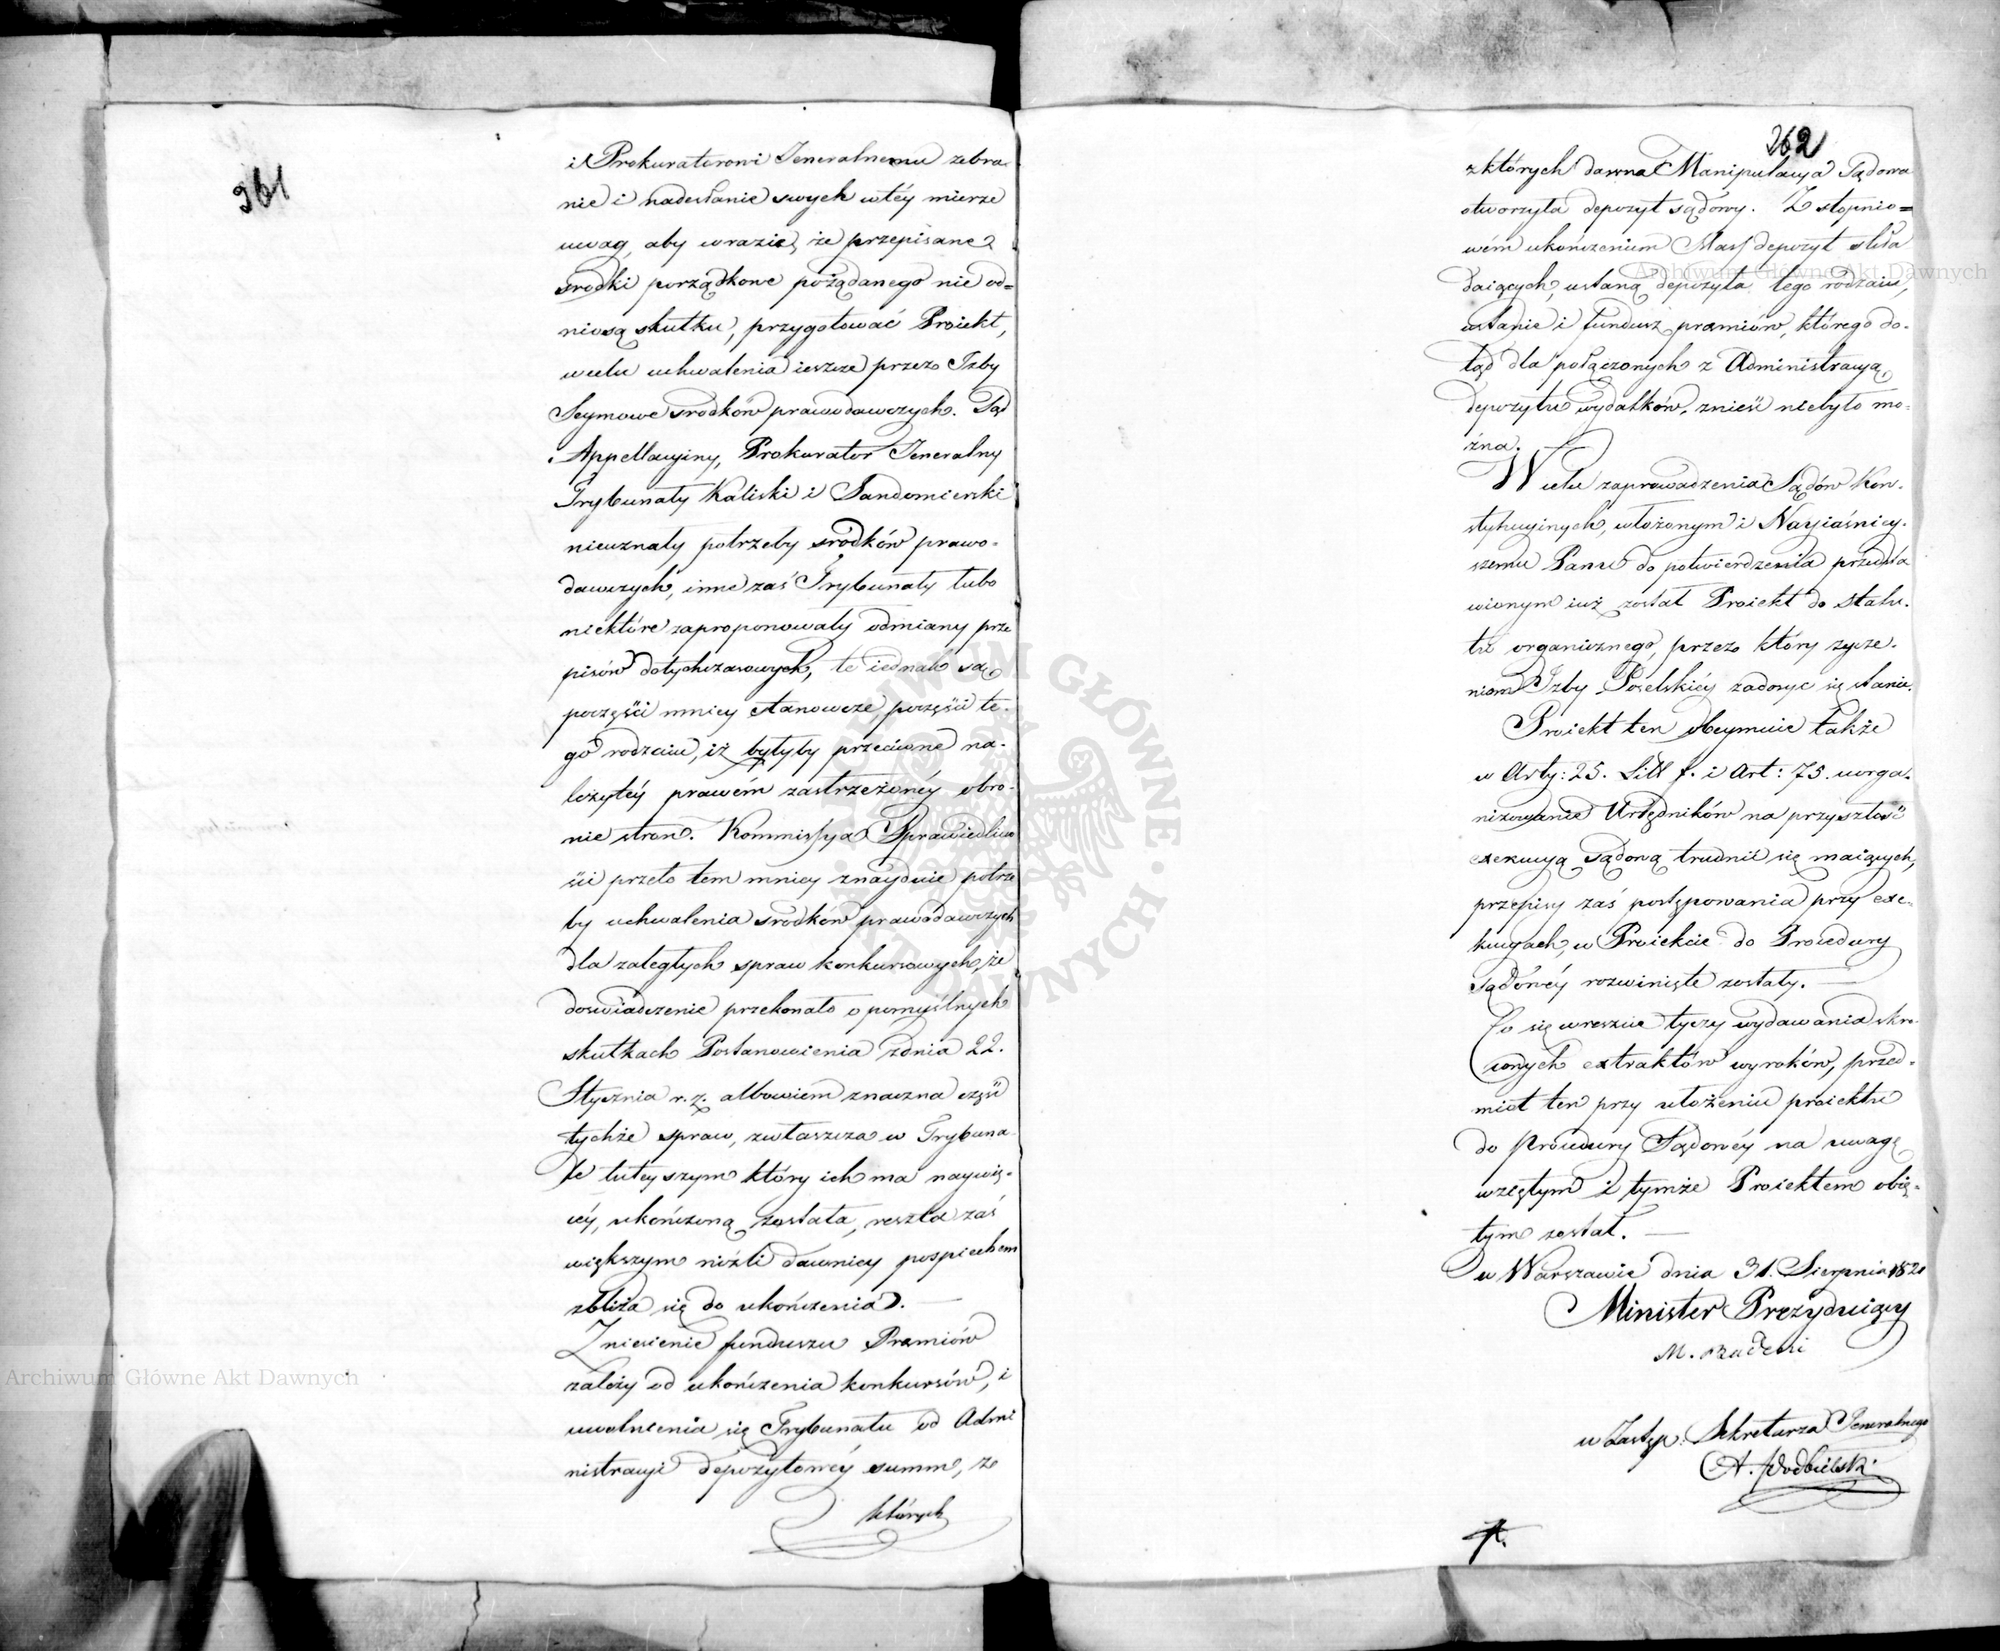 361
i Prokuratorowi Jeneralnemu zebra-
nie i nadesłanie swych w téy mierze
uwag, aby w razie, że przepisane
srodki porządkowe pożądanego nie od=
niosą skutku, przygotować Proiekt,
w celu uchwalenia ieszcze przez Izby
Seymowe srodków prawodawczych. Sąd
Appellacyiny, Prokurator Jeneralny
Trybunały Kaliski i Sandomierski
nieuznały potrzeby srodków prawo-
dawczych, inne zaś Trybunały lubo
niektóre zaproponowały odmiany prze
pisów dotychczasowych, te iednak są
poczęści mniey stanowcze, poczęści te-
go rodzaiu, iż byłyby przeciwne na-
leżytéy prawém zastrzeżonéy obro-
nie stron. Kommissya Sprawiedliwo
ści przeto tem mniey znayduie potrze
by uchwalenia srodków prawodawczych
dla zaległych spraw konkursowych, że
doświadczenie przekonało o pomyślnych
skutkach Postanowienia z dnia 22.
Stycznia r. z. albowiem znaczna część
tychże spraw, zwłaszcza w Trybuna-
le tuteyszym który ich ma naywię-
céy, ukończoną została, reszta zaś
większym niźli dawniey pospiechem
zbliża się do ukończenia. —
Zniesienie funduszu Premiów
zależy od ukończenia konkursów, i
uwolnienia się Trybunału od Admi
nistracyi depozytowéy summ, ze
których
362
z których dawna Manipulacya Sądowa
otworzyła depozyt sądowy. Z stopnio=
wém ukończeniem Mass depozyt skła
daiących, ustaną depozyta tego rodzaiu,
ustanie i fundusz premiów, którego do-
tąd dla połączonych z Administracyą
depozytu wydatków, znieść niebyło mo-
żna.
W celu zaprowadzenia Sądów Kon-
stytucyinych, ułożonym i Nayiaśniey-
szemu Panu do potwierdzenia przedsta
wionym iuż został Proiekt do Statu-
tu organicznego, przez który życze-
niom Izby Poselskiéy zadosyc się stanie.
Proiekt ten obeymuie także
w Arty: 25. Litt f. i Art: 75. uorga-
nizowanie Urzędników na przyszłość
exekucyą sądową trudnić się maiących,
przepisy zaś postępowania przy exe-
kucyach, w Proiekcie do Procedury
sądowéy rozwinięte zostały. —
Co się wreszcie tyczy wydawania skró-
conych extraktów wyroków, przed-
miot ten przy ułożeniu proiektu
do Procedury Sądowéy na uwagę
wzęętym i tymże Proiektem obię-
tym został. —
w Warszawie dnia 31. Sierpnia 1821
Minister Prezyduiący
M. Badeni
w Zastęp: Sekretarza Jeneralnego
A. Podbielski